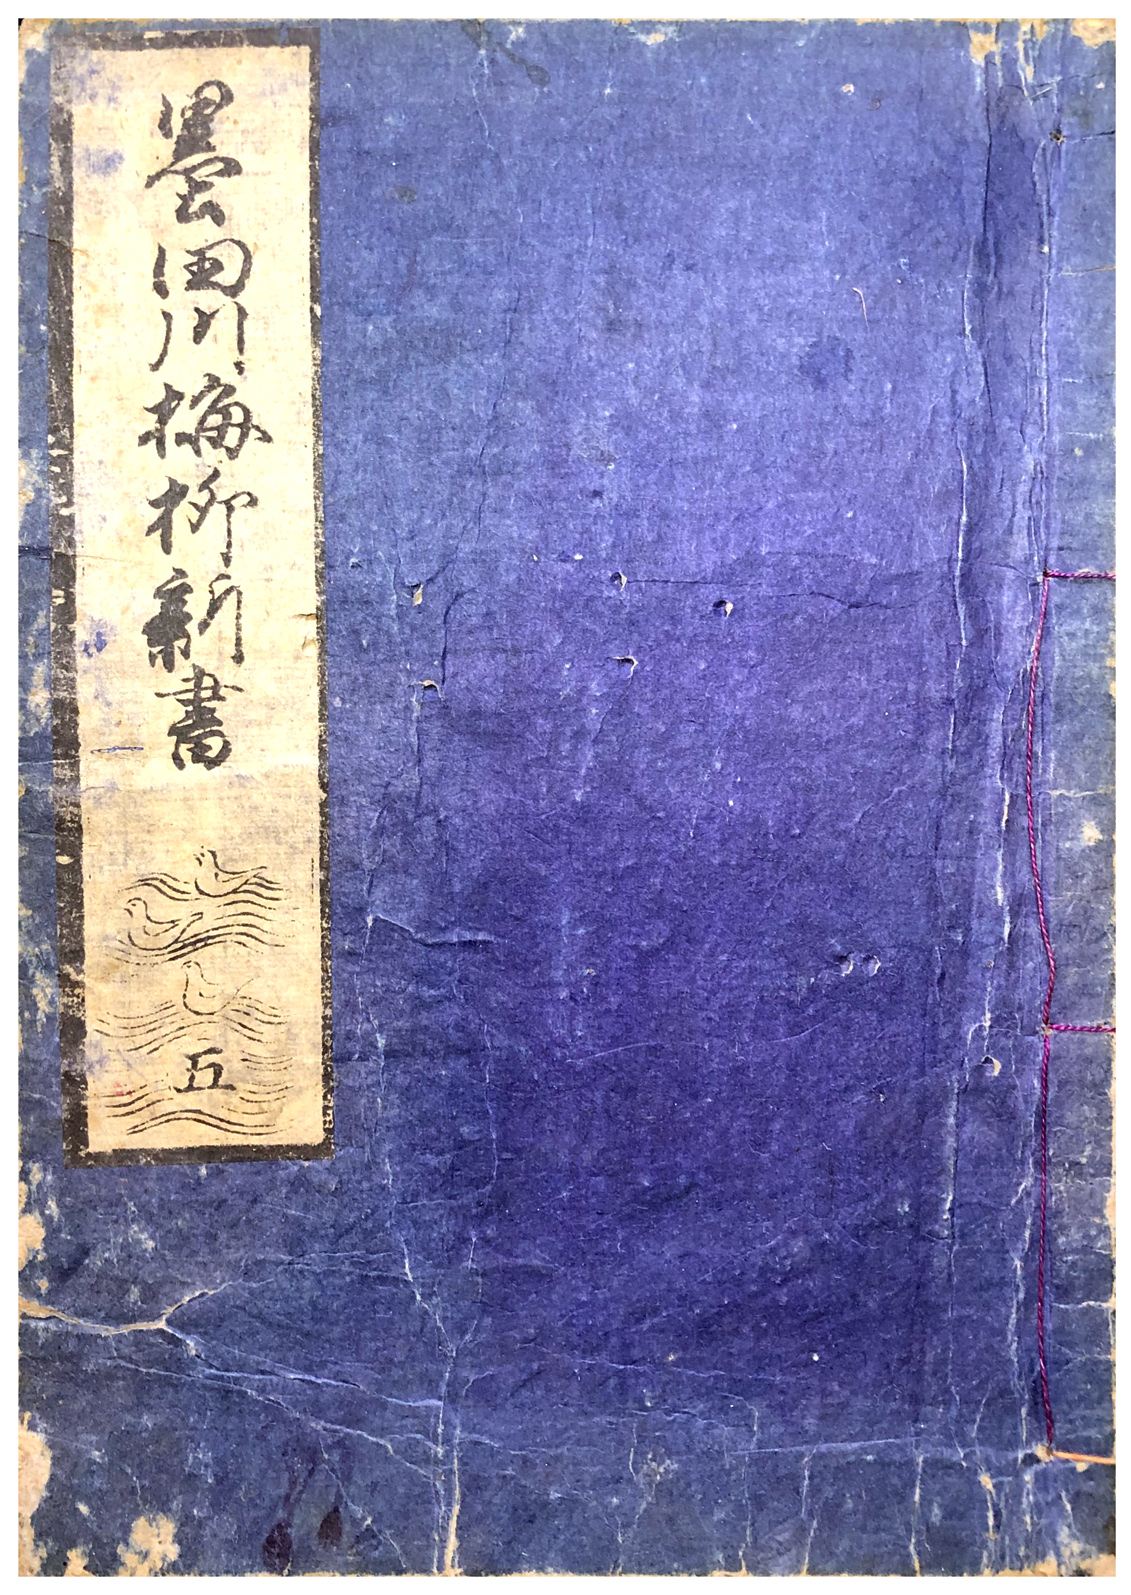 墨田川梅柳新書
五